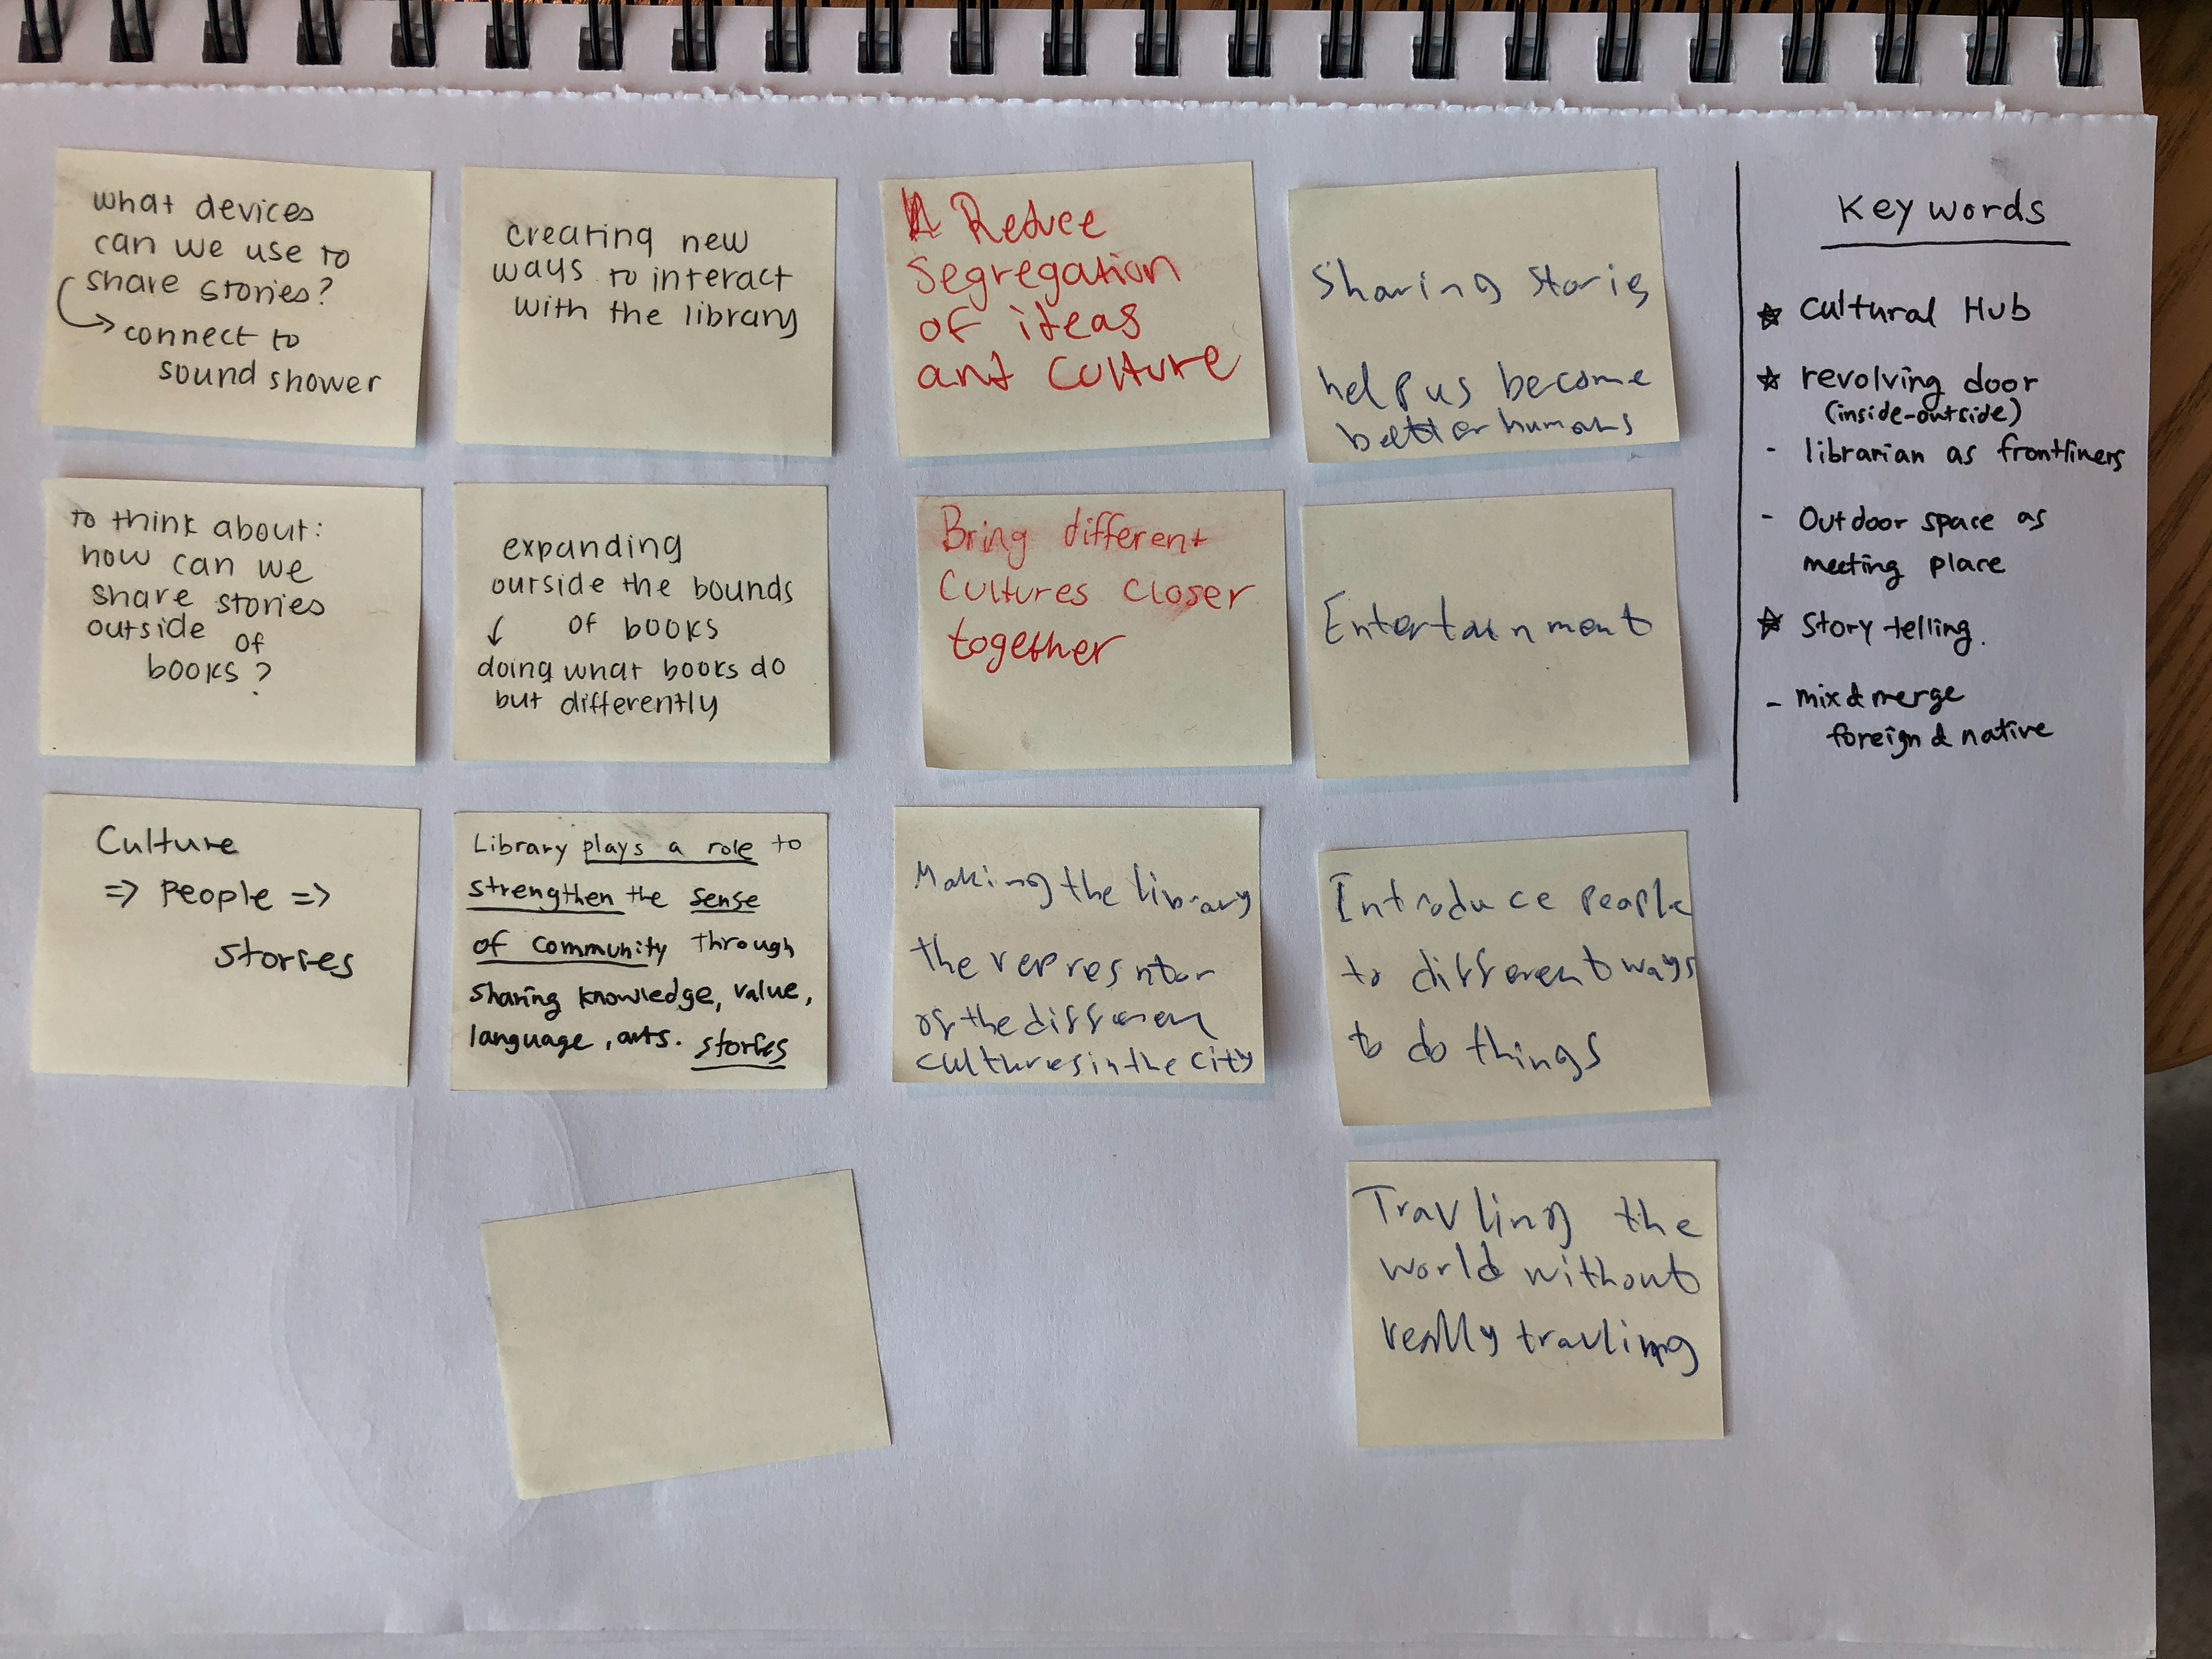 what devices
can we use to
share stories?
→ connect to
sound shower
creating new
ways to interact
with the library
Reduce
Segregation
of ideas
and Culture
Sharing stories
help us become
better humans
to think about:
how can we
share stories
outside of
books?
expanding
outside the bounds
↓ of books
doing what books do
but differently
Bring different
Cultures Closer
together
Entertainment
Culture
=> People =>
stories
Library plays a role to
strengthen the sense
of community through
sharing knowledge, value,
language, arts. stories
Making the library
the represntor
of the different
cultures in the city
Introduce people
to different ways
to do things
Travling the
world without
really travling
Key words
★ Cultural Hub
★ revolving door
(inside-outside)
- librarian as frontliners
- Outdoor space as
meeting place
★ Story telling.
- mix & merge
foreign & native